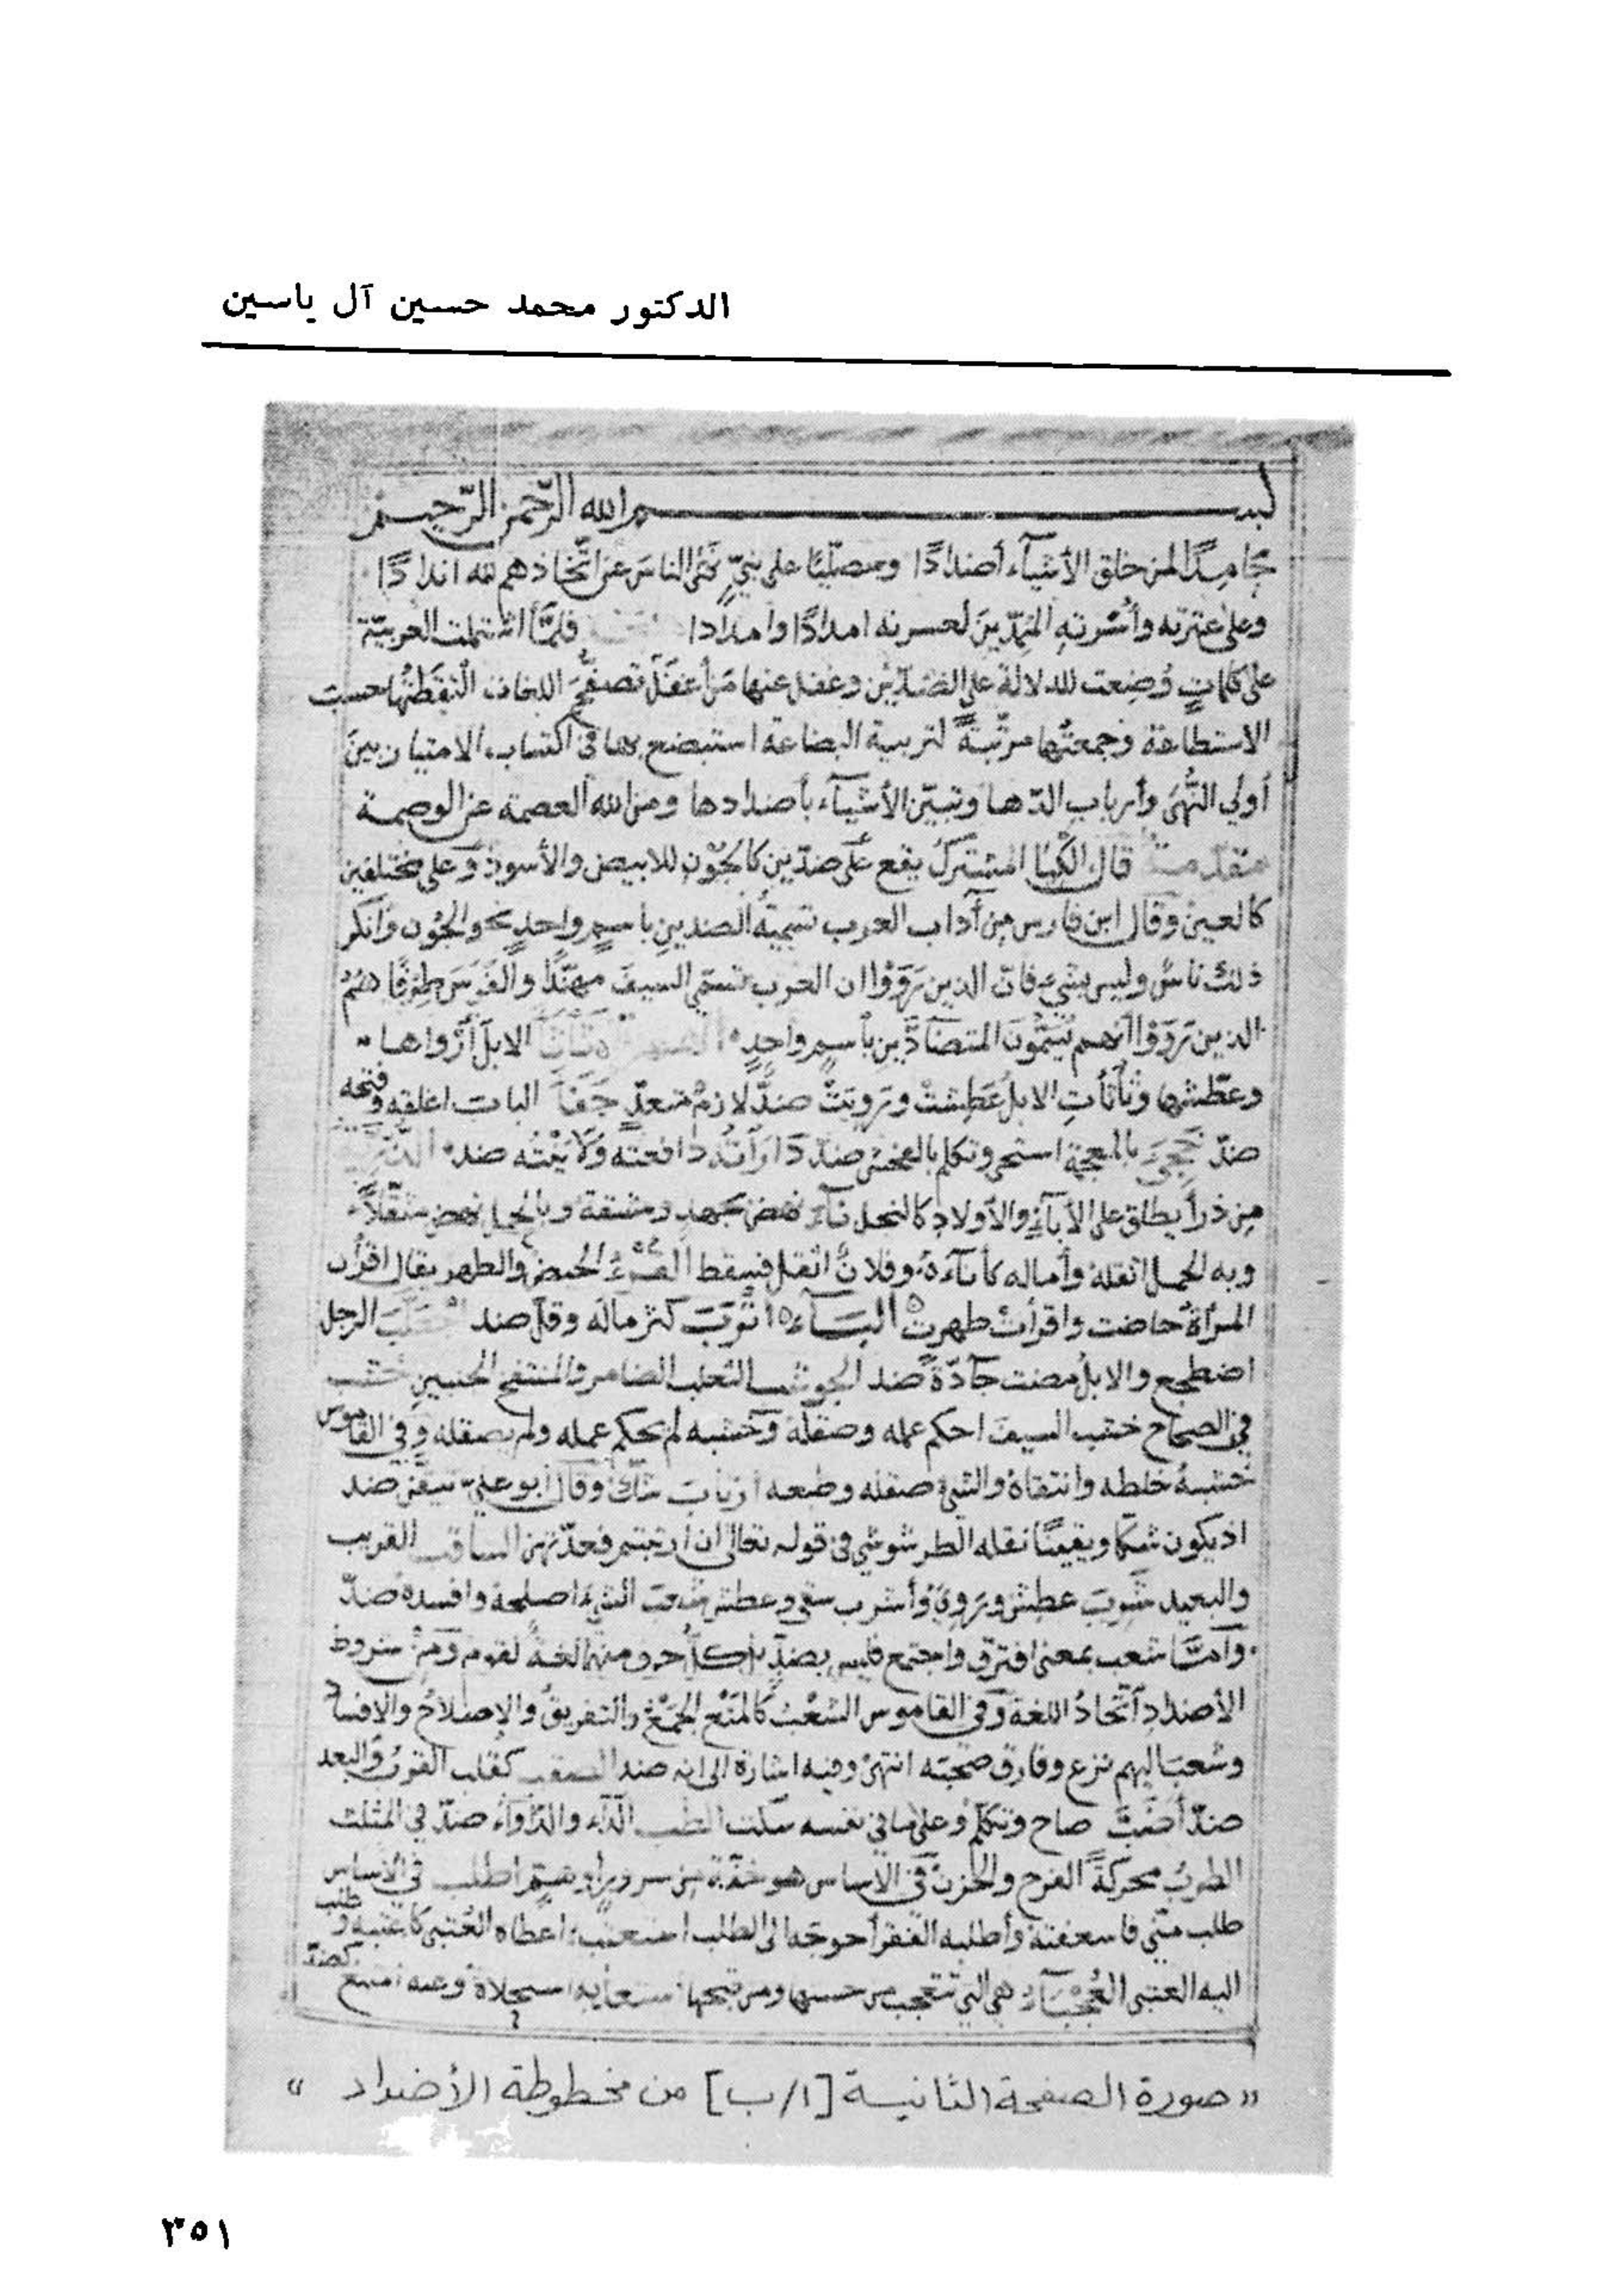 الدكتور محمد حسين آل ياسين
بسم الله الرحمن الرحيم
حَامِدًا لمن خلق الأشيآء أضدادًا ومصلّيًا على نبيٍّ نهى الناسَ عن اتّخاذهم لله اندادًا
وعلى عترته وأسرته امدادًا وامدادا فلمّا اشتملت العربيّة
على كلماتٍ وُضِعت للدلالة على الضدّين وغفل عنها مَن أغفَلَ تصفّحَ اللغات التقطتُها حسبَ
الاستطاعة وجمعتُها مرتّبةً لتربية البضاعة استبضع بها في اكتساب الامتيار بين
أولي النُّهى وأرباب الدّها وتبيّن الأشيآء بأضدادها ومن الله العصمة عن الوصمة
مقدّمة قال الكيا المشترك يقع على ضدّين كالجَوْن للابيض والأسود وعلى مختلفين
كالعين وقال ابن فارس من آداب العرب تسميةُ الضدين باسمٍ واحدٍ نحو الجَون وأنكر
ذلك ناسٌ وليس بشيء فانّ الذين رَوَوْا ان العرب تسمّي السيفَ مهنّدًا والفَرسَ طِرفًا هُمُ
الذين رَوَوْا أنهم يُسَمّونَ المتضادَّين باسمٍ واحدٍ ثَأثَأَ الابلَ أرْواها
وعطّشها وثَأثأتِ الابلُ عَطِشَتْ ورويَتْ ضدٌّ لازمٌ متعدٍّ جَفَأَ الباب اغلقه وفتحه
ضدّ استحى وتكلم بالفحش ضدّ دَارَأتُه دافعتُه ولَايَنْتُه ضد
مِن ذرأ يطلق على الأبآءِ والأولادِ كالنجل نَآءَ نهض بجهدٍ ومشقة وبالحمل نهض مثقلاً
وبه الحمل اثقلهُ وأماله كأنآءهُ وفلانٌ اثقل فسقط القُرْءُ الحيض والطهر يقال اقرأت
المرأة حاضت واقرأت طهرت البَآء أتْرَبَ كثر مالُه وقلّ ضد الرجل
اضطجع والابلُ مضت جآدّةً ضد الضامر والمنتفخ الجنبين خشب
في الصحاح خشب السيفَ احكم عمله وصقلَه وخشبه لم يحكم عمله ولم يصقله وفي القاموس
خشبهُ خلطه وانتقاهُ والشيءَ صقله وطبعه ارتاب شكّ وقال أبو عليّ تيقّن ضد
اذ يكون شكًا ويقينًا نقله الطرشوشي في قوله تعالى ان ارتبتم فعدّتهن السَاقب القريب
والبعيد شَرِبَ عطِش ورَوِيَ وأشرب سقى وعطش شعبَ الشيءَ اصلحه وافسده ضدّ
وأمّا شعب بمعنى افترق واجتمع فليس بضدٍّ بل كلُّ منهما لغةٌ لقوم ومن شروط
الأضدادِ اتّحادُ اللغة وفي القاموس الشَعْبُ كالمَنْعِ الجَمْعُ والتفريقُ والاصلاحُ والافسادُ
وشعبَ اليهم نزع وفارق صحبَه انتهى وفيه اشارة الى انه ضد السقب القربُ والبعد
ضدّ أضَبَّ صاح وتكلّم وعلى ما في نفسه سكت الطبّ الدّآء والدّوآء ضدّ في المثلث
الطربُ محرّكةً الفرح والحزنُ في الأساس هو خفّة من سرورٍ أو همّ اطلب في الأساس
طلب منّي فاسعفته وأطلبه الفقر أحوجَه الى الطلب استعتبَه اعطاه العُتبى كاعتبه وطلب
اليه العتبى كضدّ العُجْبَآء هي التي تتعجب من حسنها ومن قبحها
» صورة الصفحة الثانية [١/ب] من مخطوطة الأضداد «
٣٥١